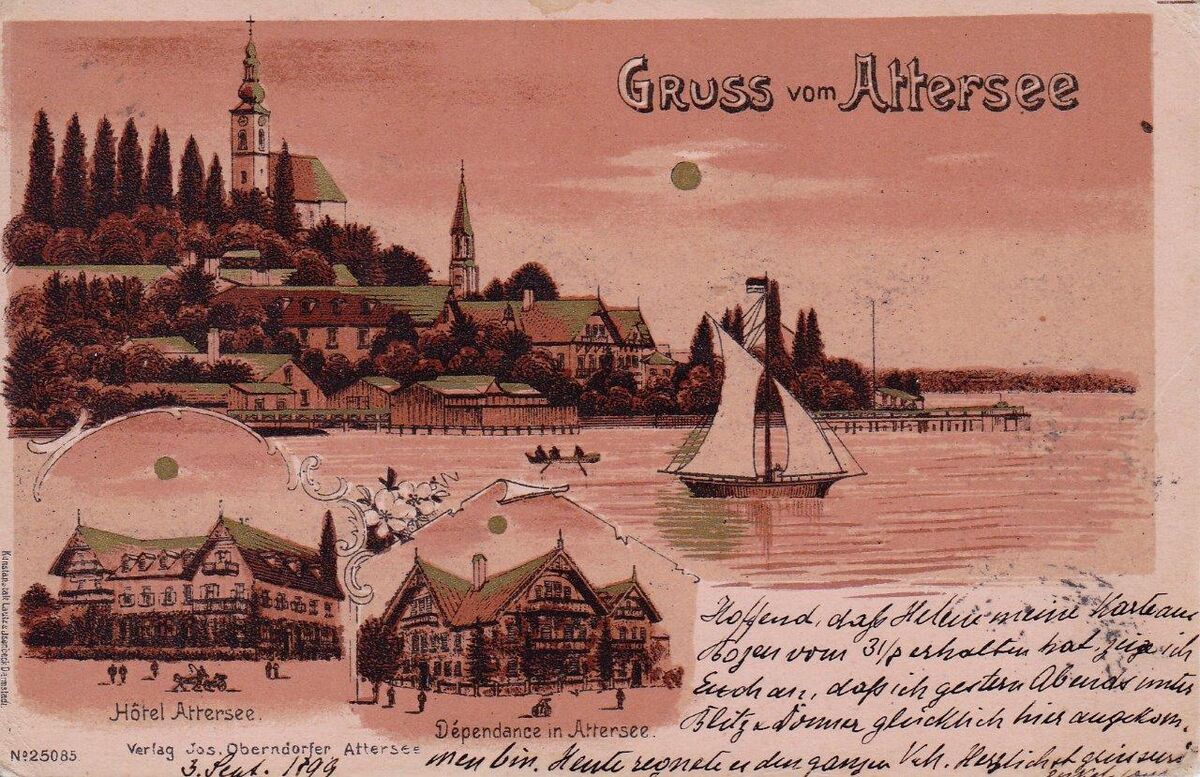 GRUSS vom Attersee
Hôtel Attersee.
Dépendance in Attersee.
Kunstanstalt Lautz & Isenbeck Darmstadt.
No 25085
Verlag Jos. Oberndorfer Attersee
3. Sept. 1899
Hoffend, daß Helene meine Karte aus
Bozen vom 31/8 erhalten hat, zeige ich
Euch an, daß ich gestern Abends unter
Blitz u Donner glücklich hier angekom-
men bin. Heute regnete es den ganzen Herzlichst grüßend